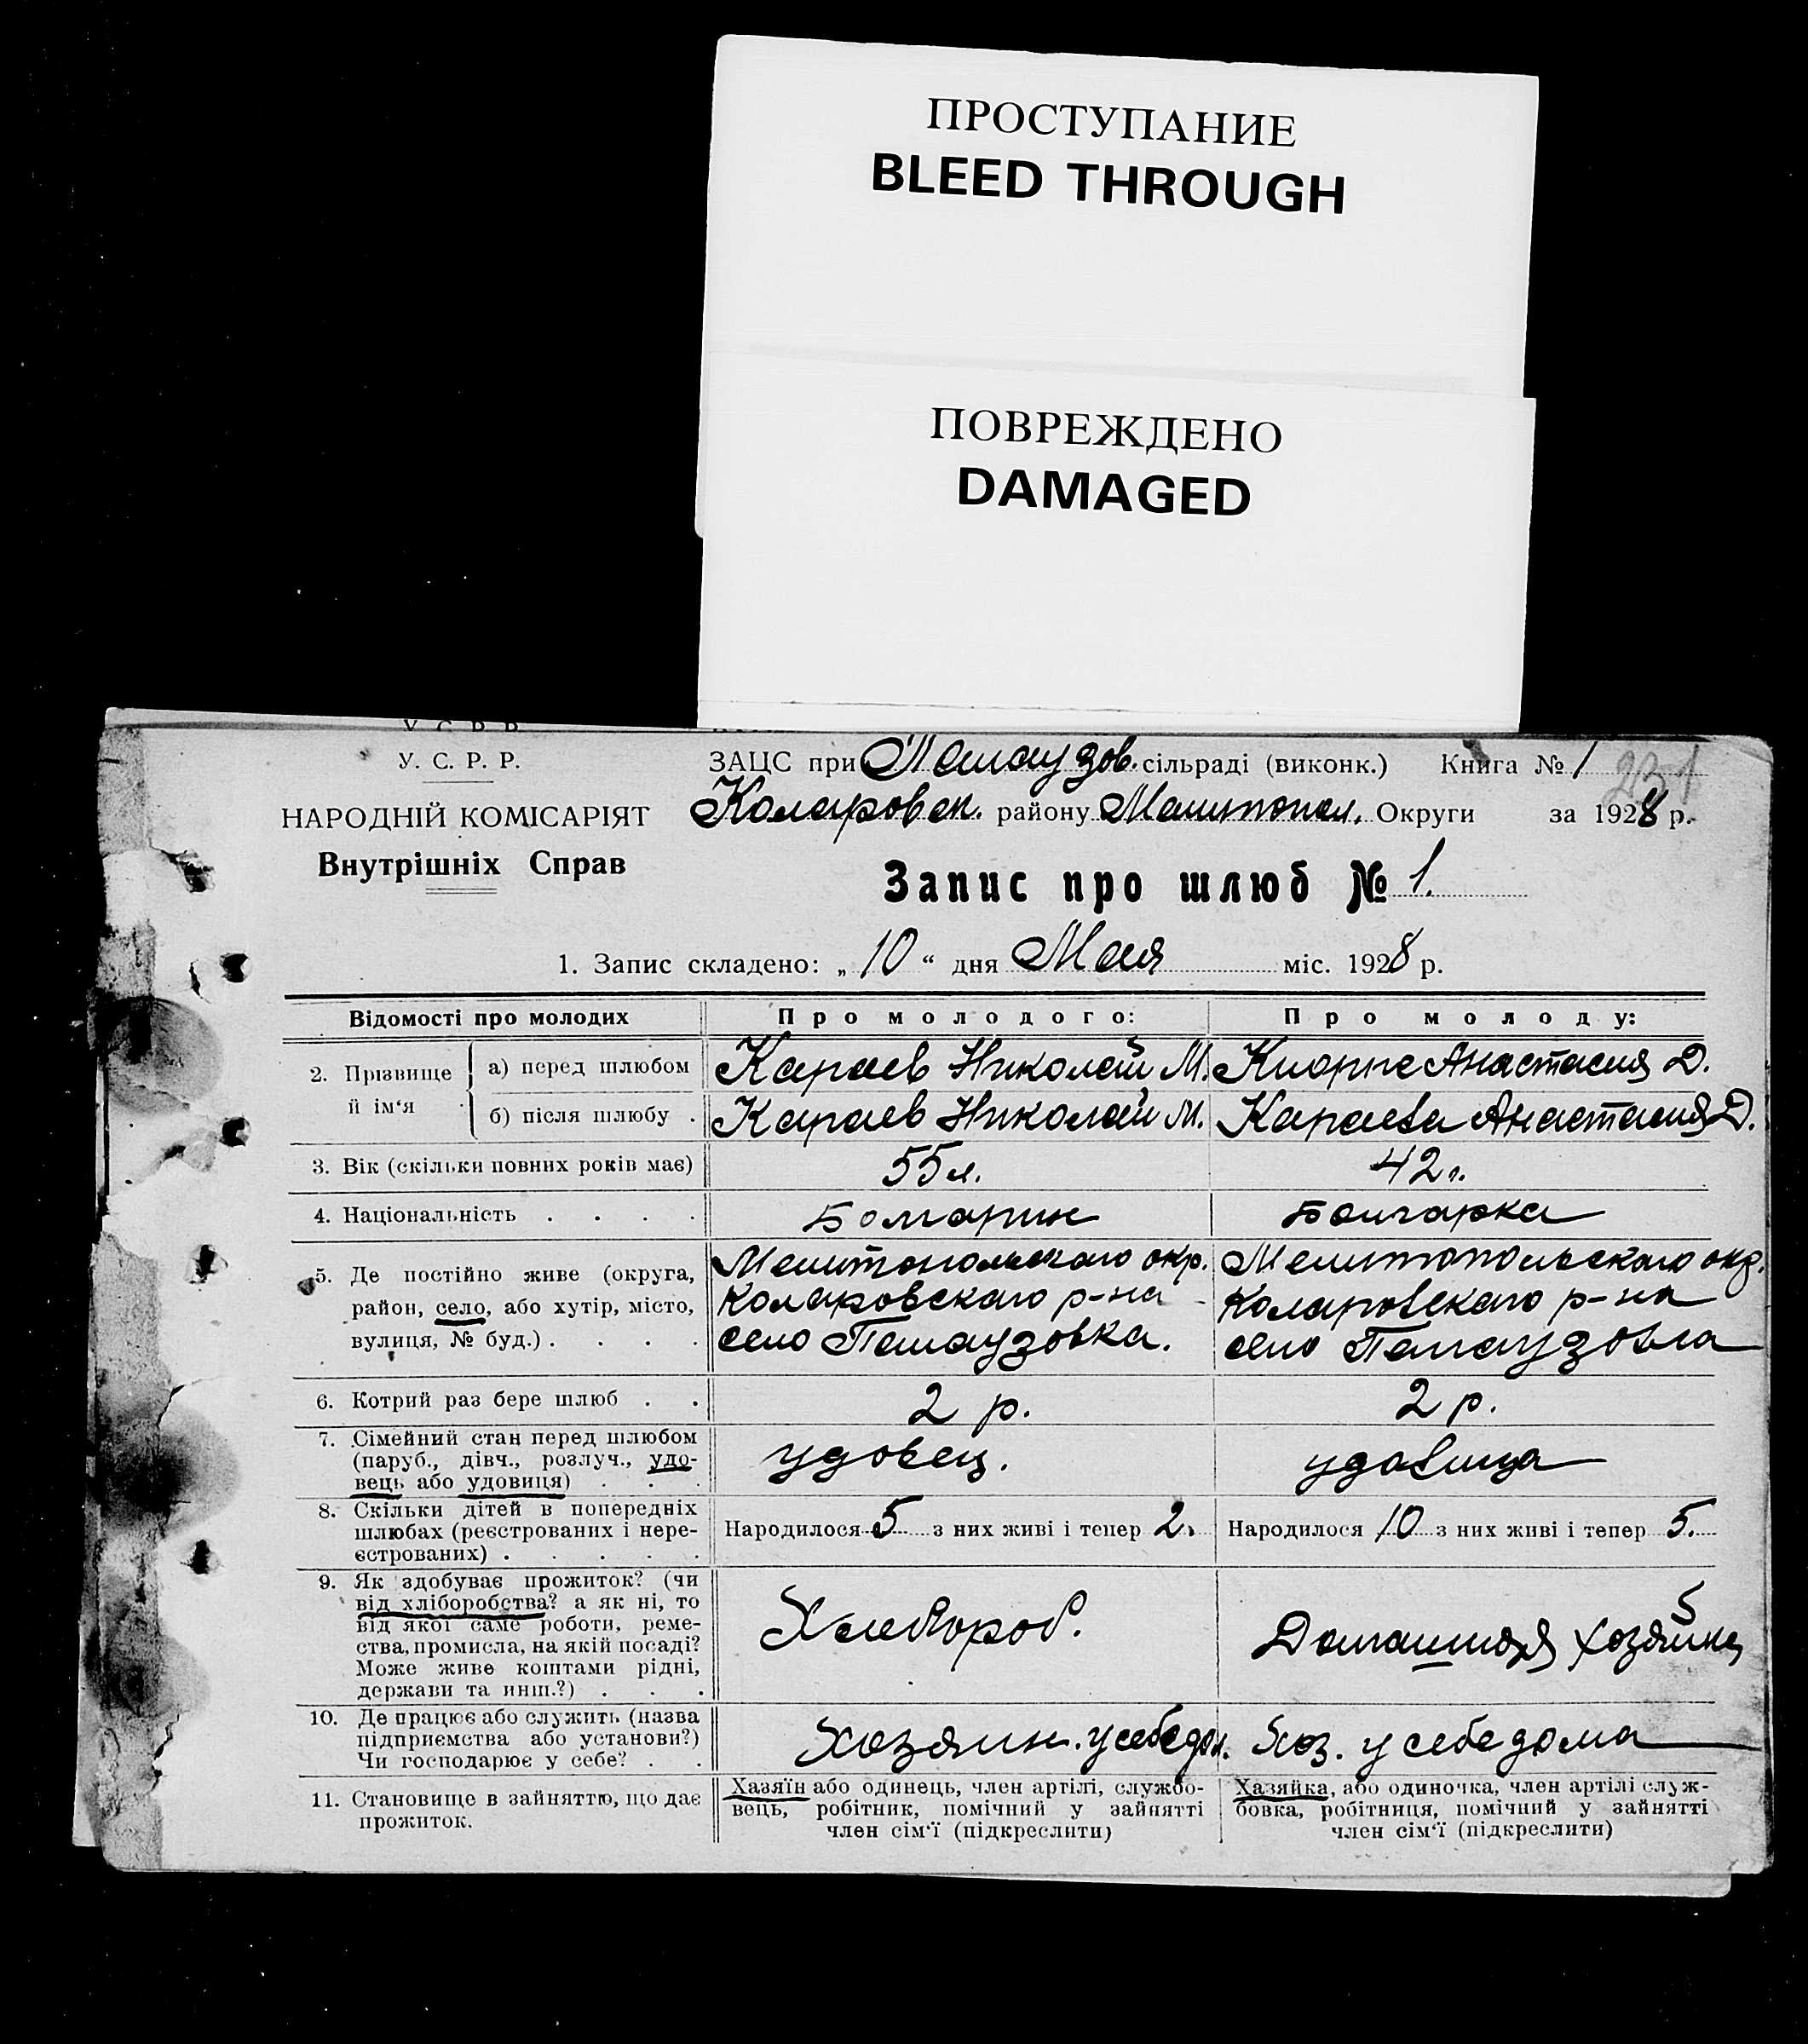 ПРОСТУПАНИЕ
BLEED THROUGH
ПОВРЕЖДЕНО
DAMAGED
У. С. Р. Р.
У. С. Р. Р.
НАРОДНІЙ КОМІСАРІЯТ
Внутрішніх Справ
ЗАЦС при Палаузов. сільраді (виконк.) Книга № 1 231
Коларовск. району Мелитопол. Округи за 1928 р.
Запис про шлюб № 1.
1. Запис складено: „ 10 “ дня Мая міс. 1928 р.
Відомості про молодих Про молодого: Про молоду:
2. Прізвище й ім‘я
а) перед шлюбом Караев Николай М. Анастасия Д.
б) після шлюбу . Караев Николай М. Караева Анастасия Д.
3. Вік (скільки повних років має) 55 л. 42 л.
4. Національність . . . . Болгарин Болгарка
5. Де постійно живе (округа,
район, село, або хутір, місто,
вулиця, № буд.) . . . .
Мелитопольскаго окр.
Коларовскаго р-на
село Палаузовка.
Мелитопольскаго окр.
Коларовскаго р-на
село Палаузовка
6. Котрий раз бере шлюб . . 2 р. 2 р.
7. Сімейний стан перед шлюбом
(паруб., дівч., розлуч., удо-
вець або удовиця) . . .
удовец. удовица
8. Скільки дітей в попередніх
шлюбах (реєстрованих і нере-
єстрованих) . . . . .
Народилося 5 з них живі і тепер 2. Народилося 10 з них живі і тепер 5.
9. Як здобуває прожиток? (чи
від хліборобства? а як ні, то
від якої саме роботи, реме-
ства, промисла, на якій посаді?
Може живе коштами рідні,
держави та инш.?) . . .
Хлебороб. Домашняя хозяйка
10. Де працює або служить (назва
підприємства або установи?)
Чи господарює у себе? . .
Хозяин. у себе дом. Хоз. у себе дома
11. Становище в зайняттю, що дає
прожиток.
Хазяїн або одинець, член артілі, службо-
вець, робітник, помічний у зайнятті
член сім‘ї (підкреслити)
Хазяйка, або одиночка, член артілі служ-
бовка, робітниця, помічний у зайнятті
член сім‘ї (підкреслити)